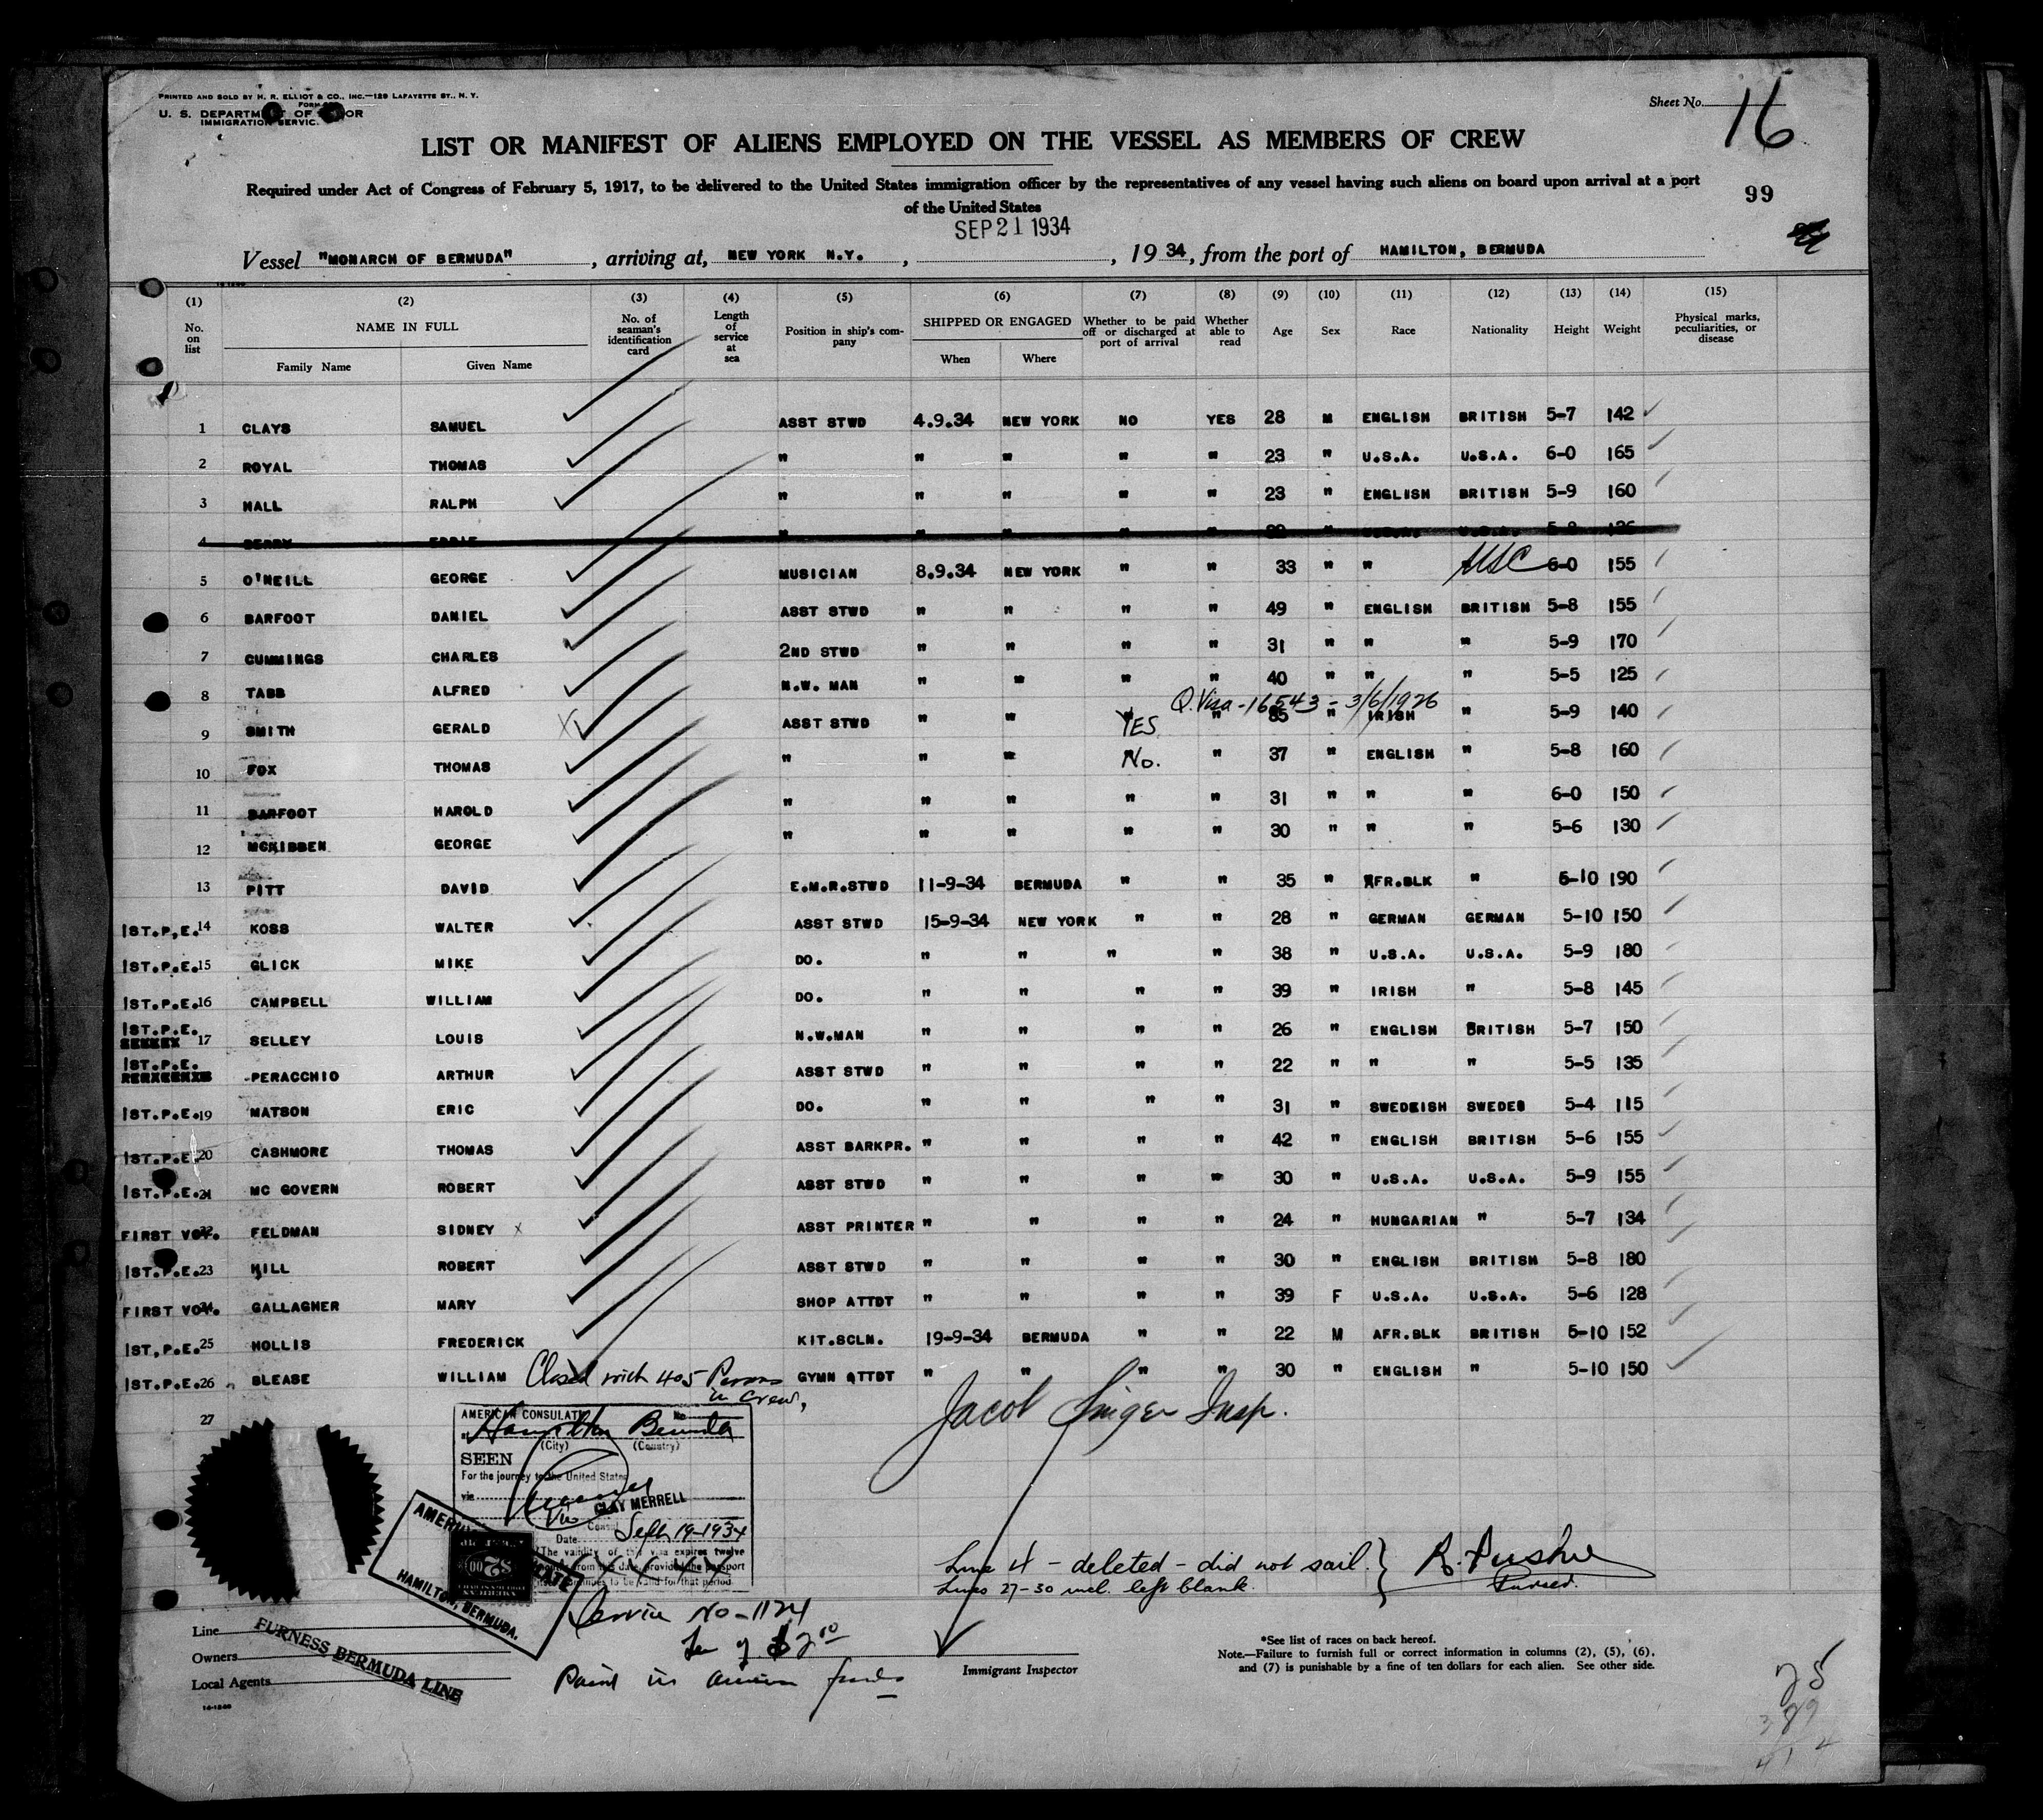 PRINTED AND SOLD BY H. R. ELLIOT & CO., INC.—129 LAFAYETTE ST., N. Y.
FORM
U. S. DEPARTMENT OF LABOR
IMMIGRATION SERVICE
Sheet No. 16
LIST OR MANIFEST OF ALIENS EMPLOYED ON THE VESSEL AS MEMBERS OF CREW
Required under Act of Congress of February 5, 1917, to be delivered to the United States immigration officer by the representatives of any vessel having such aliens on board upon arrival at a port
of the United States
99
SEP 21 1934
Vessel "MONARCH OF BERMUDA", arriving at, NEW YORK N.Y., , 1934, from the port of HAMILTON, BERMUDA
(1) (2) (3) (4) (5) (6) (7) (8) (9) (10) (11) (12) (13) (14) (15)
No. on list NAME IN FULL No. of seaman's identification card Length of service at sea Position in ship's company SHIPPED OR ENGAGED Whether to be paid off or discharged at port of arrival Whether able to read Age Sex Race Nationality Height Weight Physical marks, peculiarities, or disease
Family Name Given Name When Where
1 CLAYS SAMUEL ASST STWD 4.9.34 NEW YORK NO YES 28 M ENGLISH BRITISH 5-7 142
2 ROYAL THOMAS " " " " " 23 " U.S.A. U.S.A. 6-0 165
3 HALL RALPH " " " " " 23 " ENGLISH BRITISH 5-9 160
4 BERRY EDDIE " " " " " "  U.S.A. U.S.A. 5-8
5 O'NEILL GEORGE MUSICIAN 8.9.34 NEW YORK " " 33 " " USC 6-0 155
6 BARFOOT DANIEL ASST STWD " " " " 49 " ENGLISH BRITISH 5-8 155
7 CUMMINGS CHARLES 2ND STWD " " " " 31 " " " 5-9 170
8 TABB ALFRED N.W. MAN " " " " 40 " " " 5-5 125
Q.Visa-16543 - 3/6/1926
9 SMITH GERALD X ASST STWD " " YES " 35 " IRISH " 5-9 140
10 FOX THOMAS " " " No. " 37 " ENGLISH " 5-8 160
11 BARFOOT HAROLD " " " " " 31 " " " 6-0 150
12 MCKIBBEN GEORGE " " " " " 30 " " " 5-6 130
13 PITT DAVID E.M.R.STWD 11-9-34 BERMUDA " " 35 " AFR.BLK " 6-10 190
1ST.P.E. 14 KOSS WALTER ASST STWD 15-9-34 NEW YORK " " 28 " GERMAN GERMAN 5-10 150
1ST.P.E. 15 GLICK MIKE DO. " " " " 38 " U.S.A. U.S.A. 5-9 180
1ST.P.E. 16 CAMPBELL WILLIAM DO. " " " " 39 " IRISH " 5-8 145
1ST.P.E. 17 SELLEY LOUIS N.W.MAN " " " " 26 " ENGLISH BRITISH 5-7 150
1ST.P.E. PERACCHIO ARTHUR ASST STWD " " " " 22 " " " 5-5 135
1ST.P.E. 19 MATSON ERIC DO. " " " " 31 " SWEDEISH SWEDES 5-4 115
1ST.P.E. 20 CASHMORE THOMAS ASST BARKPR. " " " " 42 " ENGLISH BRITISH 5-6 155
1ST.P.E. 21 MC GOVERN ROBERT ASST STWD " " " " 30 " U.S.A. U.S.A. 5-9 155
FIRST VOY. 22 FELDMAN SIDNEY X ASST PRINTER " " " " 24 " HUNGARIAN " 5-7 134
1ST.P.E. 23 HILL ROBERT ASST STWD " " " " 30 " ENGLISH BRITISH 5-8 180
FIRST VOY. 24 GALLAGHER MARY SHOP ATTDT " " " " 39 F U.S.A. U.S.A. 5-6 128
1ST,P.E. 25 HOLLIS FREDERICK KIT.SCLN. 19-9-34 BERMUDA " " 22 M AFR.BLK BRITISH 5-10 152
1ST.P.E. 26 BLEASE WILLIAM GYMN ATTDT " " " " 30 " ENGLISH " 5-10 150
Closed with 405 Persons
in crew,
27
Jacob Singer Insp.
AMERICAN CONSULATE No
at Hamilton Bermuda
(City) (Country)
SEEN
For the journey to the United States
via
CLAY MERRELL
Vice Consul
Date Sept 19-1934
The validity of this visa expires twelve
months from this date provided the passport
continues to be valid for that period
AMERICAN CONSULATE
HAMILTON, BERMUDA.
Line 4 - deleted - did not sail.
Lines 27-30 incl. left blank.
Purser.
Service No-1124
Fee of $2.00
Paid in American funds
Line
Owners
Local Agents
FURNESS BERMUDA LINE
Immigrant Inspector
*See list of races on back hereof.
Note.—Failure to furnish full or correct information in columns (2), (5), (6),
and (7) is punishable by a fine of ten dollars for each alien. See other side.
25